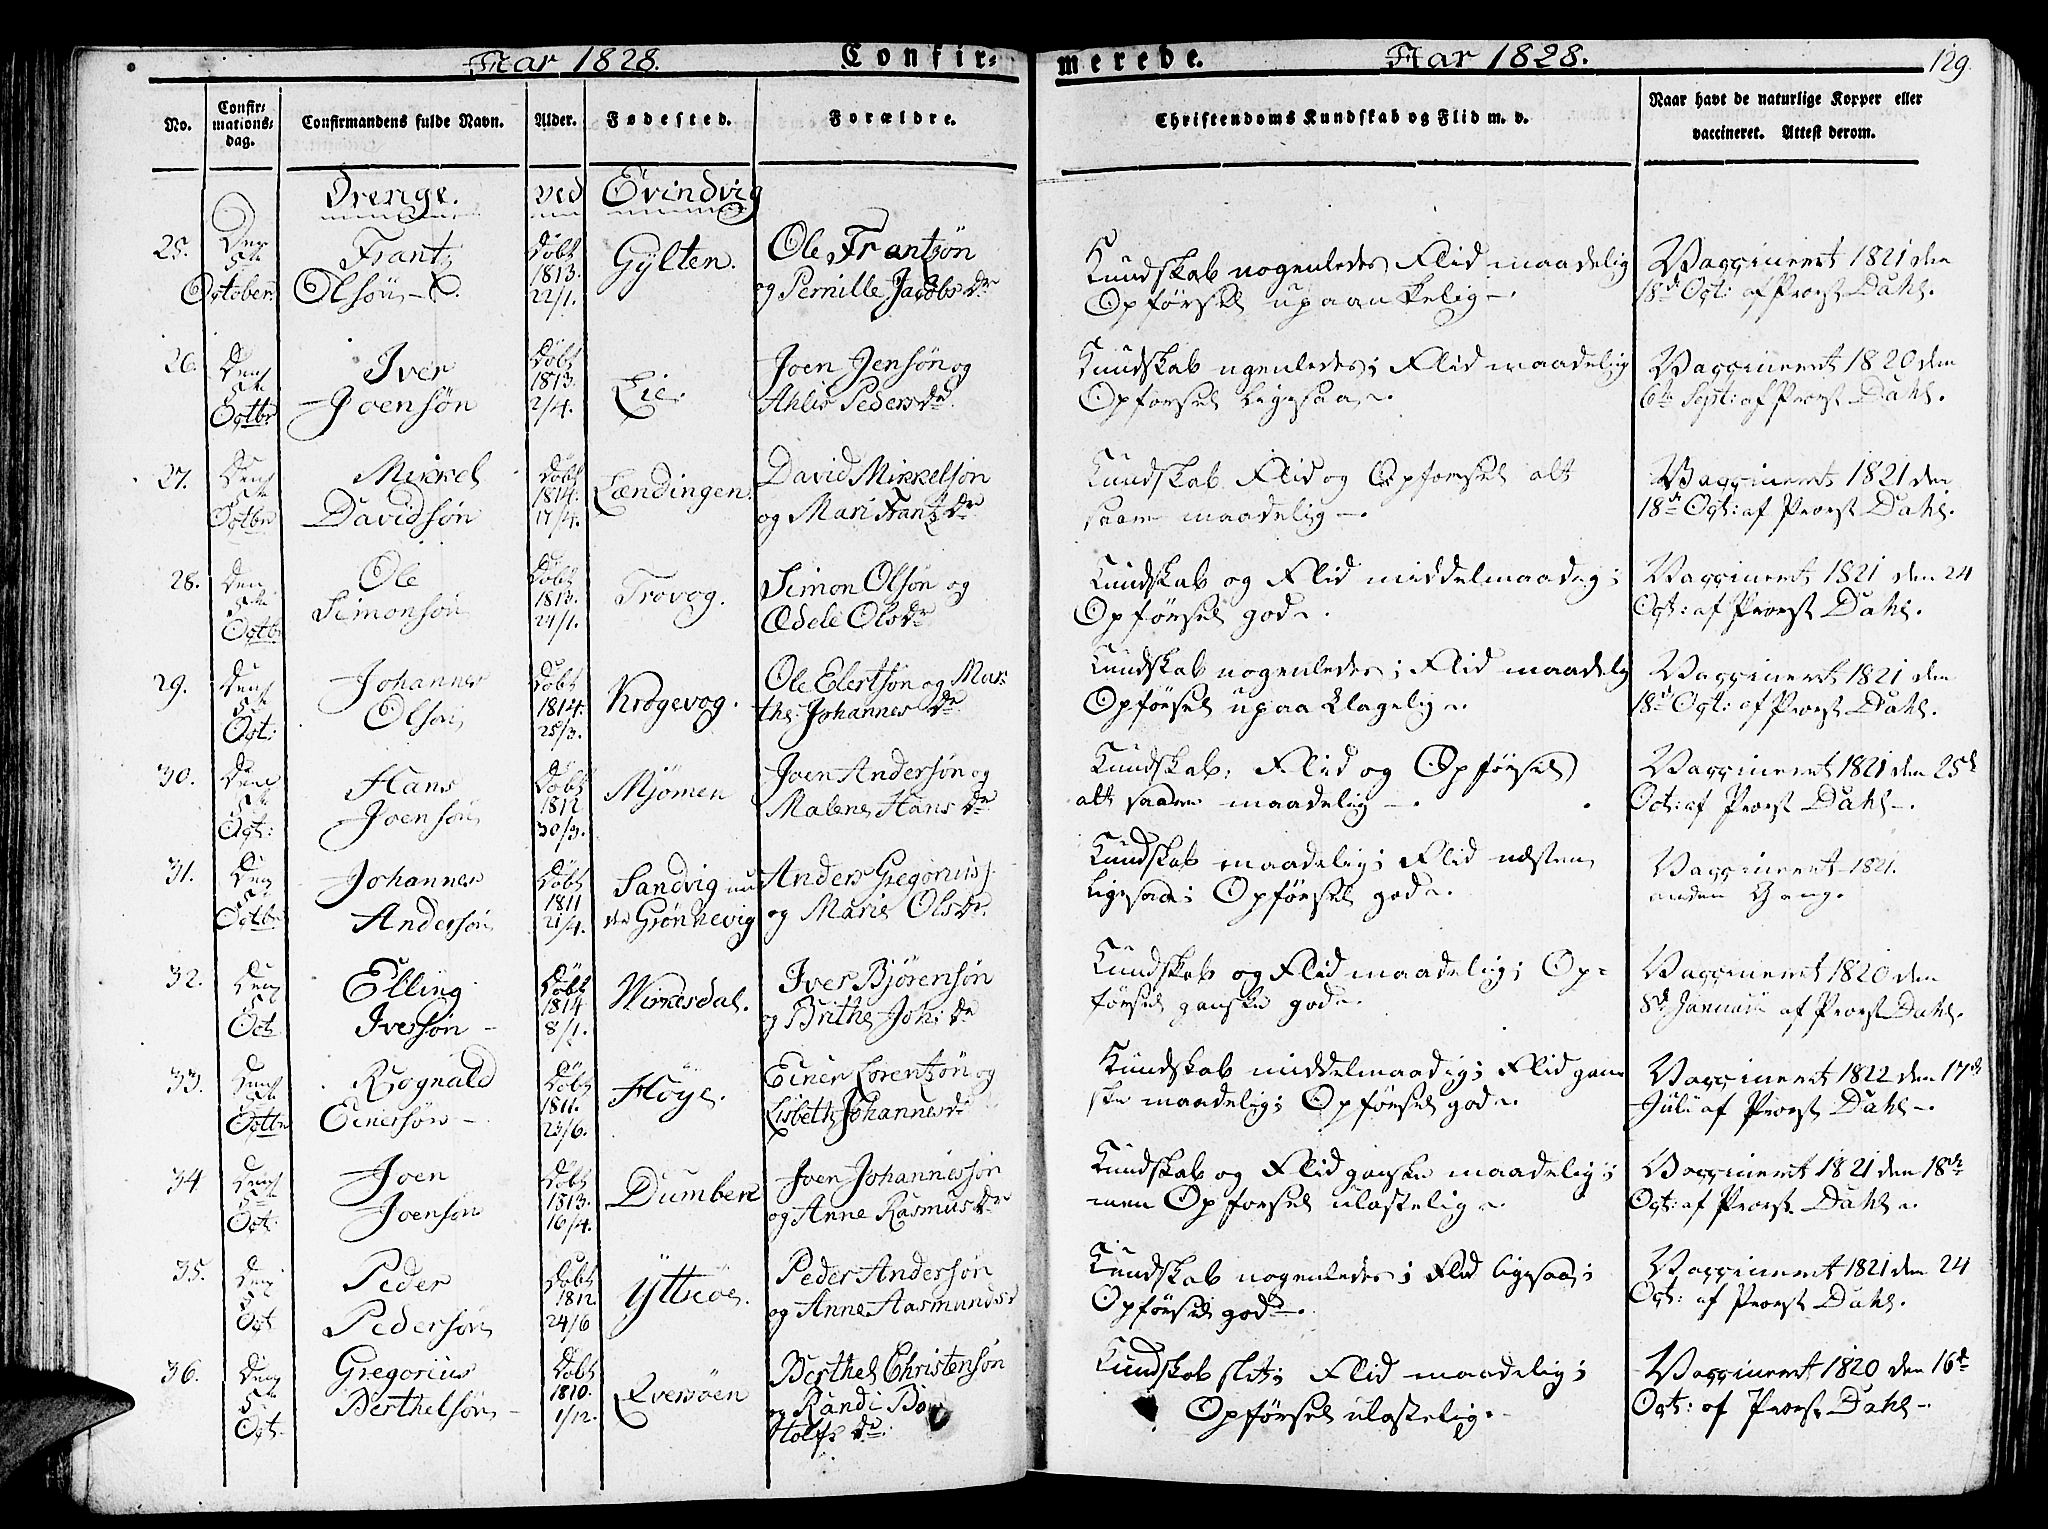 Aar 1828. Confir=
merede. Aar 1828. 129.
No. Confir=mations=dag. Confirmandens fulde Navn. Alder. Fødested. Forældre. Christendoms Kundskab og Flid m. v. Naar havt de naturlige Kopper eller vaccineret. Attest derom.
Drenge. ved Evindvig
25. Den 5te October Frantz Olsøn Döbt 1813. 22/1. Gÿlten. Ole Frantzøn og Pernille Jacobs Dr
Kundskab nogenledes Flid maadelig
Opførsel upaankelig.
Vaccineret 1821 den
18de Oct: af Provst Dahl.
26. Den 5te Octbr Iver Joensøn Döbt 1813. 2/4. Lie. Joen Jensøn og Ahlis Peders Dr
Kundskab nogenledes; Flid maadelig
Opførsel ligesaa.
Vaccineret 1820 den
6te Sept: af Provst Dahl.
27. Den 5te Octbr Mikkel Davidsøn Döbt 1814. 17/4. Lændingen. David Mikkelsøn og Mari Frantz Dr
Kundskab Flid og Opførsel alt
saare maadelig.
Vaccineret 1821 den
18de Oct: af Provst Dahl.
28. Den 5te Octbr Ole Simonsøn Döbt 1813. 24/1. Trovog. Simon Olsøn og Ædele Ols Dr
Kundskab og Flid middelmaadig;
Opførsel god.
Vaccineret 1821 den 24
Oct: af Provst Dahl.
29. Den 5te Oct: Johannes Olsøn Döbt 1814. 25/3. Krogevog. Ole Elertsøn og Marthe Johannes Dr
Kundskab nogenledes; Flid maadelig
Opførsel upaaklagelig.
Vaccineret 1821 den
18de Oct: af Provst Dahl.
30. Den 5te Oct: Hans Joensøn Döbt 1812 30/3. Mjömen Joen Andersøn og Malene Hans Dr
Kundskab, Flid og Opførsel
alt saare maadelig.
Vaccineret 1821 den 25de
Oct: af Provst Dahl.
31. Den 5te Octbr Johannes Andersøn Döbt 1811 21/4. Sandvig un der Grønnevig Anders Gregorius og Marie Ols Dr.
Kundskab maadelig; Flid næsten
ligesaa; Opførsel god.
Vaccineret 1821.
anden Gang.
32. Den 5te Oct Elling Iversøn Döbt 1814 8/1. Wirkesdal. Iver Bjørensøn og Brithe Joh: Dr
Kundskab og Flid maadelig; Op=
førsel ganske god.
Vaccineret 1820 den
8de Januar af Provst Dahl.
33. Den 5te Octbr Rognald Einersøn Döbt 1811. 23/6. Höÿe. Einer Lorentzøn og Lisbeth Johannes Dr
Kundskab middelmaadig; Flid gan
ske maadelig; Opførsel god.
Vaccineret 1822 den 17de
Juli af Provst Dahl.
34 Den 5te Oct: Joen Joensøn Döbt 1813. 16/4. Dumben Joen Johannessøn og Anne Rasmus Dr
Kundskab og Flid ganske maadelig;
men Opførsel ulastelig.
Vaccineret 1821 den 18de
Oct: af Provst Dahl.
35. Den 5te Oct Peder Pedersøn Döbt 1812. 24/6 Ÿtreöe. Peder Andersøn og Anne Aasmunds
Kundskab nogenledes; Flid ligesaa;
Opførsel god.
Vaccineret 1821 den 24
Oct: af Provst Dahl.
36. Den 5te Oct: Gregorius Berthelsøn Döbt 1810. 1/12. Qversöen Berthel Christensøn og Randi Holfs Dr
Kundskab slet; Flid maadelig;
Opførsel ulastelig.
Vaccineret 1820 den 16de
Oct: af Provst Dahl.